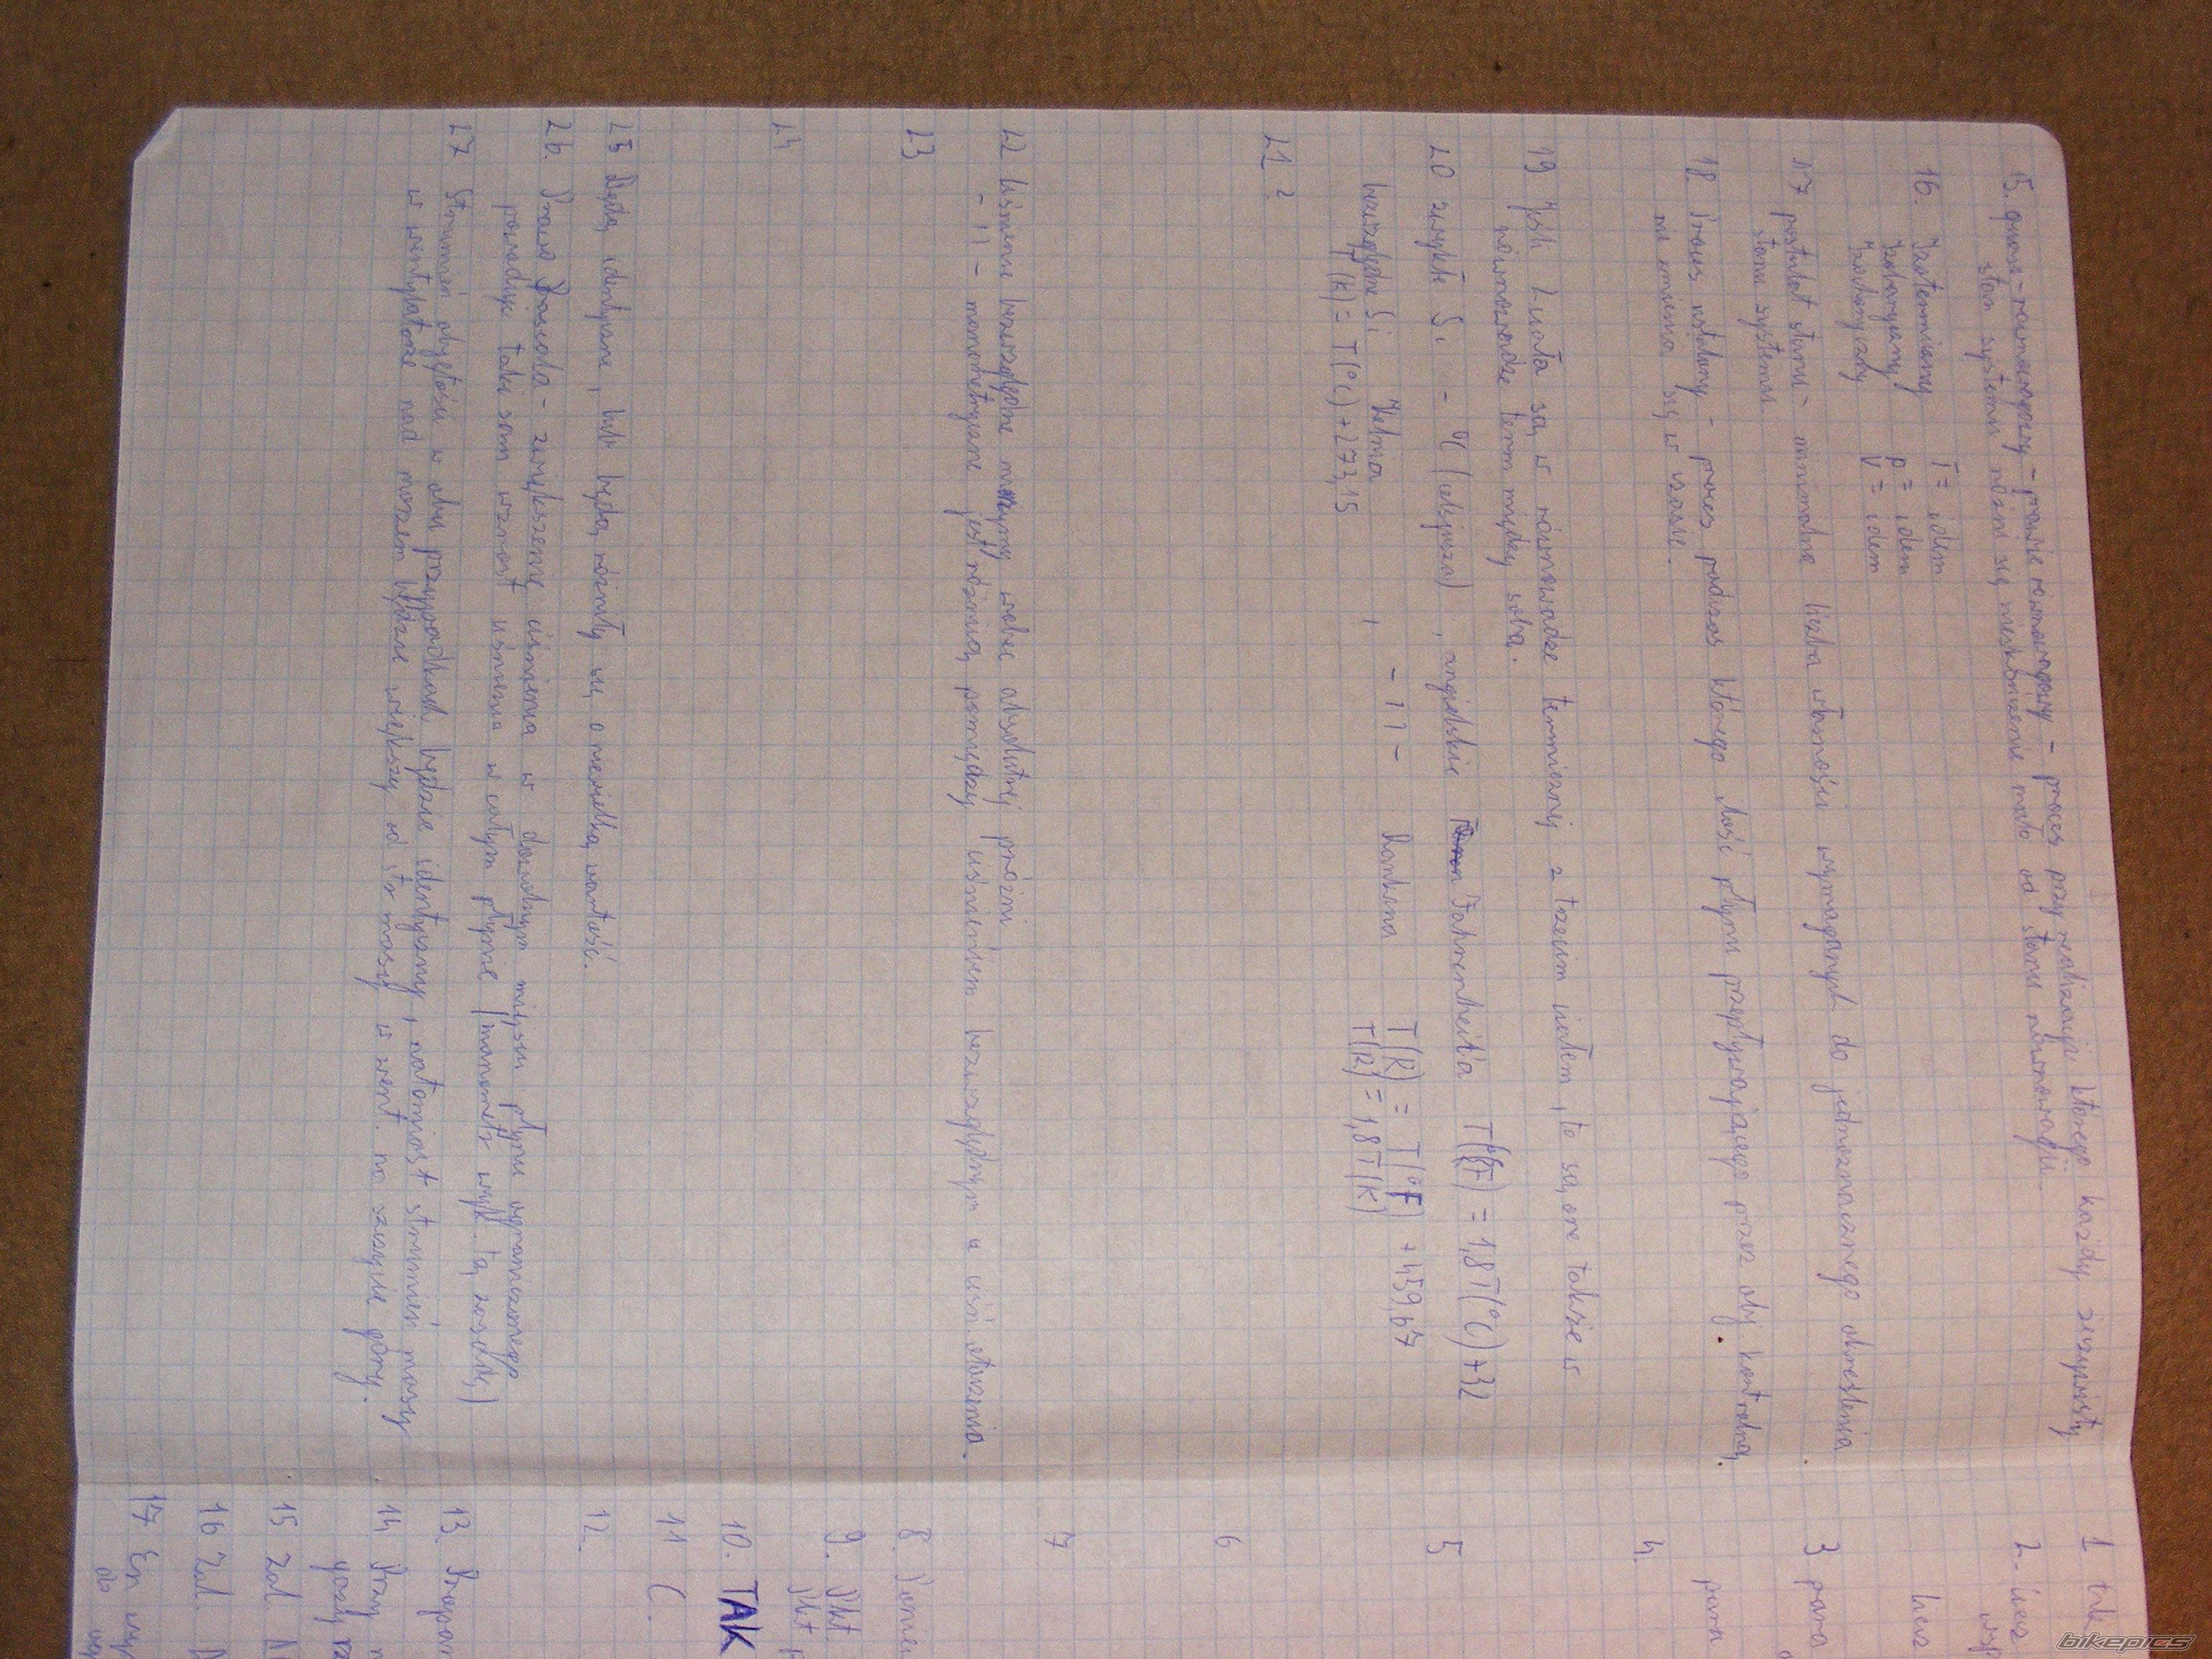 15. quasi-równowagowy - prawie równowagowy - proces przy realizacji którego każdy rzeczywisty
stan systemu różni się nieskończenie mało od stanu równowagi.
16. Izotermiczny T = idem
Izobaryczny p = idem
Izochoryczny V = idem
17 postulat stanu - minimalna liczba własności wymaganych do jednoznacznego określenia
stanu systemu.
18. Proces ustalony - proces podczas którego ilość płynu przepływającego przez obj. kontrolną
nie zmienia się w czasie.
19 Jeśli 2 ciała są w równowadze termicznej z trzecim ciałem, to są one także w
równowadze term między sobą.
20 zwykłe Si - °C (celsjusza), angielskie Fahrenheita T(°F) = 1,8T(°C)+32
bezwzględne Si Kelvina, - 11 - Rankina T(R) = T(°F) + 459,67
T(K) = T(°C) + 273,15 T(R) = 1,8T(K)
21 ?
22 Ciśnienie bezwzględne mierzymy wobec absolutnej próżni
- 11 - manometryczne jest różnicą pomiędzy ciśnieniem bezwzględnym a ciśn. otoczenia.
23
24
25 Będą identyczne, lub będą różniły się o niewielką wartość.
26. Prawo Pascala - zwiększenie ciśnienia w dowolnym miejscu płynu ograniczonego
powoduje taki sam wzrost ciśnienia w całym płynie (manometr wyk. tą zasadę)
27 Strumień objętości w obu przypadkach będzie identyczny, natomiast strumień masy
w wentylatorze nad morzem będzie większy od str masy w went. na szczycie góry.
1 tak
2.
3 para
para
4.
5
6
7
8.
9. Pkt.
Pkt
10. TAK
11 C.
12.
13.
14
15 Zal
16 Zal
17 En
do
bikepics